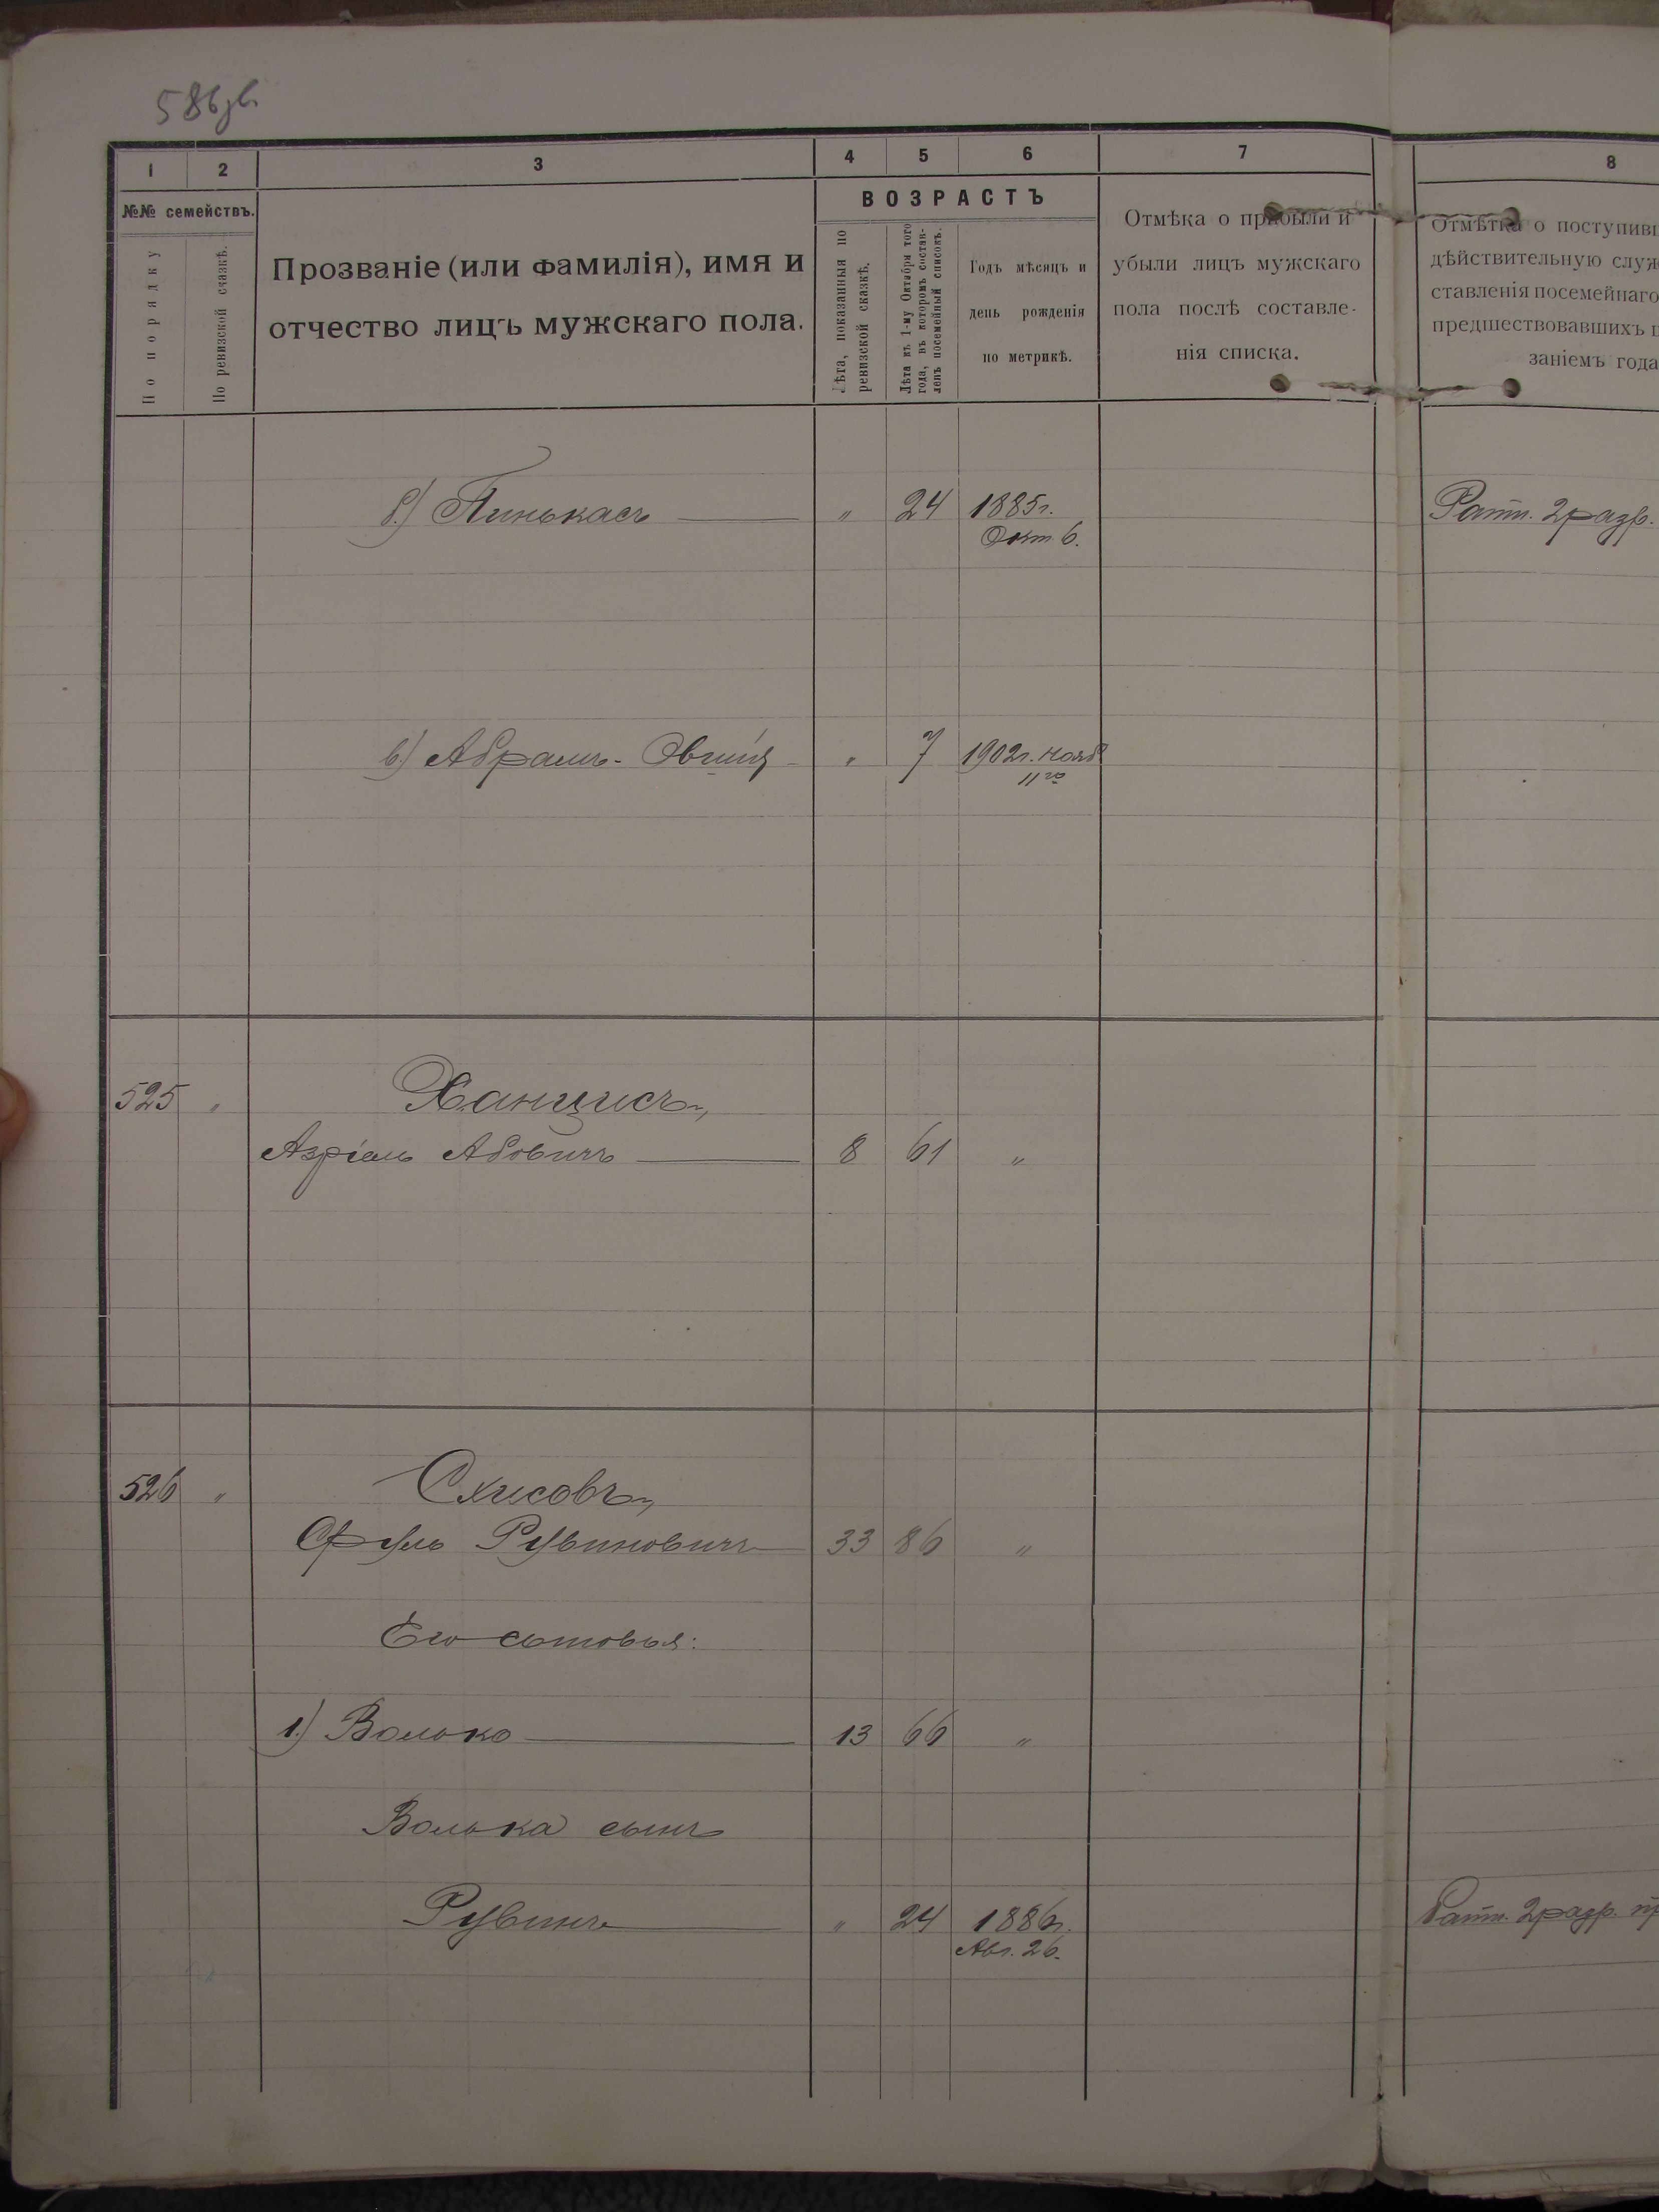 586об.
1 2 3 4 5 6 7 8
№№ семействъ.
По порядку
По ревизской сказкѣ.
Прозваніе (или фамилія), имя и
отчество лицъ мужскаго пола.
ВОЗРАСТЪ
Лѣта, показанныя по
ревизской сказкѣ.
Лѣта къ 1-му Октября того
года, въ которомъ состав-
ленъ посемейный списокъ.
Годъ мѣсяцъ и
день рожденія
по метрикѣ.
Отмѣка о прибыли и
убыли лицъ мужскаго
пола послѣ составле-
нія списка.
Отмѣтка о поступивш
дѣйствительную служ
ставленія посемейнаго
предшествовавшихъ п
заніемъ года
б.) Пинькасъ „ 24 1885г. Ратн. 2 разр.
Окт 6.
в.) Абрамъ-Овшія „ 7 1902г. нояб
11го
525 „ Ханцисъ,
Азріель Абовичъ 8 61 „
526 „ Схисовъ,
Сруль Рувиновичъ 33 86 „
Его сыновья:
1.) Волько 13 66 „
Волька сынъ
Рувинъ „ 24 1886г. Ратн. 2 разр. пр
Авг. 26.